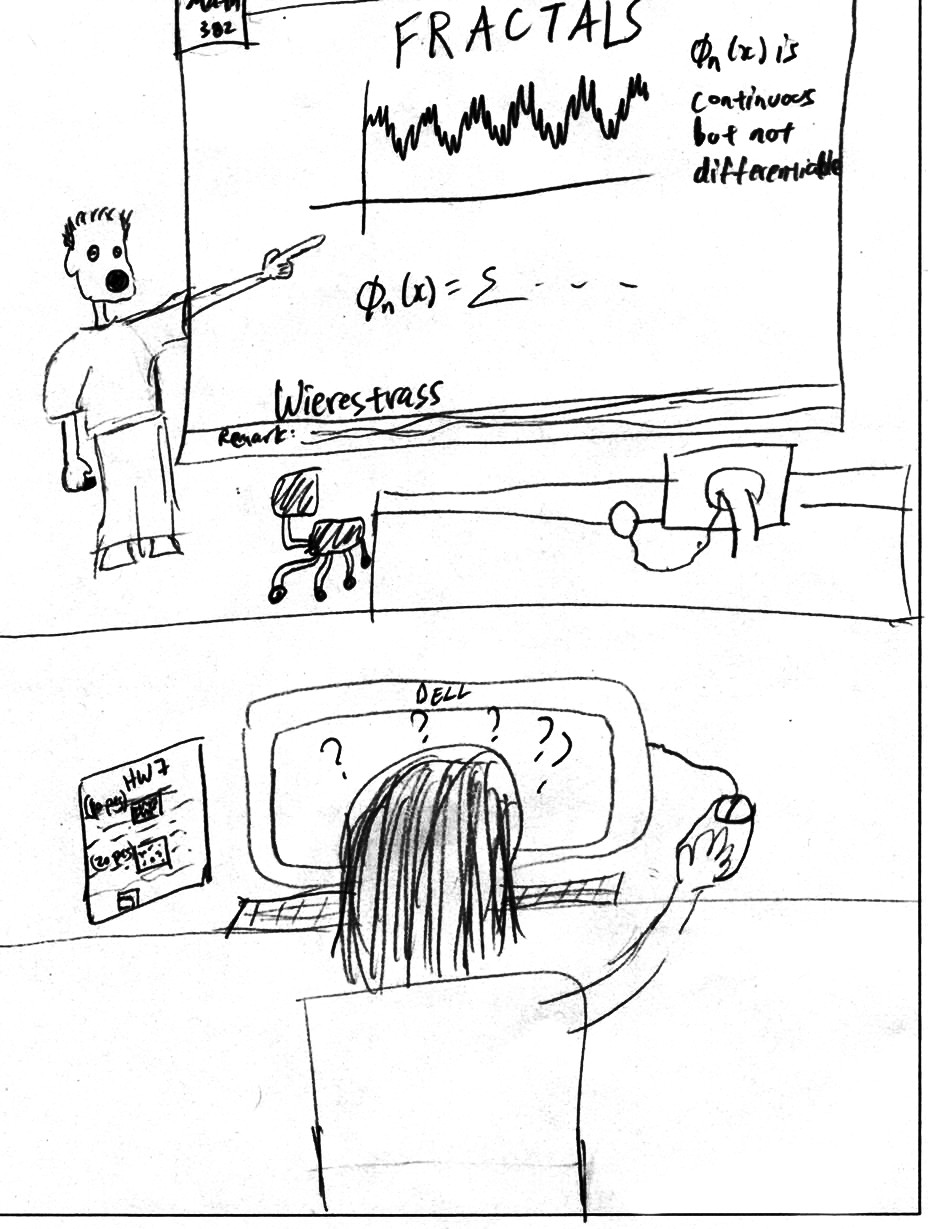 MATH
382
FRACTALS
ϕₙ(x) is
continuous
but not
differentiable
ϕₙ(x) = Σ - - - -
Wierestrass
Remark:
DELL
? ? ? ? ?
HW7
(20 pts)